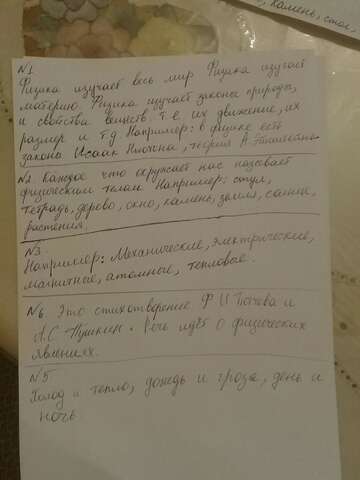 камень, стол,
N1
Физика изучает весь мир Физика изучает
материю. Физика изучает законы природы,
и свойства веществ. т.е. их движение, их
размер и т.д Например: в физике есть
закона Исаак Ньютна, теория А.
N2. Каждое что окружает нас называет
физическим телом Например: стул,
тетрадь, дерево, окно, камень, земля, солнце,
растения.
N3.
Например: Механические, электрические,
магнитные, атомные, тепловые.
N6. Это стихотворение Ф И Тютчева и
А.С Пушкин. Речь идёт о физических
явлениях.
N5.
Холод и тепло, дождь и гроза, день и
ночь.